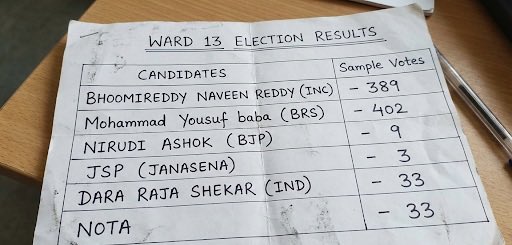 WARD 13 ELECTION RESULTS
CANDIDATES Sample Votes
BHOOMIREDDY NAVEEN REDDY (INC) - 389
Mohammad Yousuf baba (BRS) - 402
NIRUDI ASHOK (BJP) - 9
JSP (JANASENA) - 3
DARA RAJA SHEKAR (IND) - 33
NOTA - 33